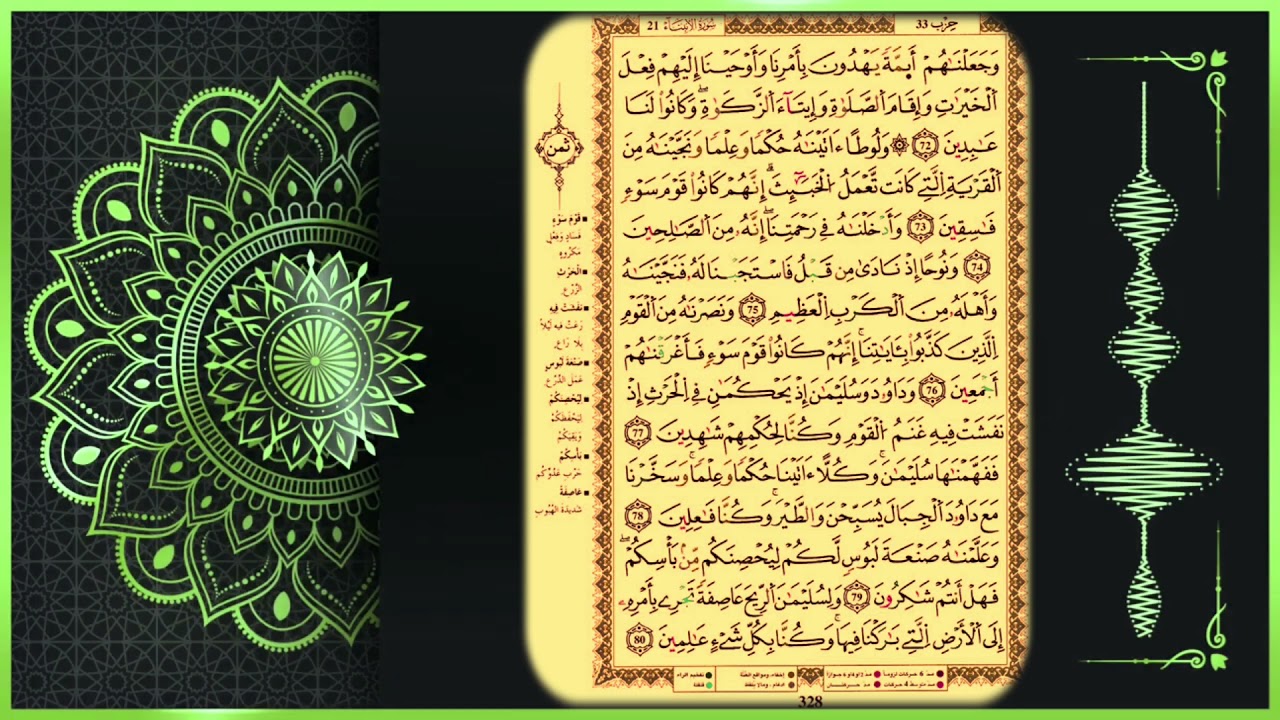 سُورَةُ الأَنبِيَاءِ 21
حِزْب 33
وَجَعَلْنَٰهُمْ أَئِمَّةً يَهْدُونَ بِأَمْرِنَا وَأَوْحَيْنَا إِلَيْهِمْ فِعْلَ
اَلْخَيْرَٰتِ وَإِقَامَ اَلصَّلَوٰةِ وَإِيتَآءَ اَلزَّكَوٰةِ وَكَانُواْ لَنَا
عَٰبِدِينَ 72 ۞ وَلُوطاً ءَاتَيْنَٰهُ حُكْماً وَعِلْماً وَنَجَّيْنَٰهُ مِنَ
اَلْقَرْيَةِ اِلتِے كَانَت تَّعْمَلُ اُلْخَبَٰٓئِثَ إِنَّهُمْ كَانُواْ قَوْمَ سَوْءٖ
فَٰسِقِينَ 73 وَأَدْخَلْنَٰهُ فِے رَحْمَتِنَا إِنَّهُۥ مِنَ اَلصَّٰلِحِينَ
74 وَنُوحاً إِذْ نَادَىٰ مِن قَبْلُ فَاسْتَجَبْنَا لَهُۥ فَنَجَّيْنَٰهُ
وَأَهْلَهُۥ مِنَ اَلْكَرْبِ اِلْعَظِيمِ 75 وَنَصَرْنَٰهُ مِنَ اَلْقَوْمِ
اِلذِينَ كَذَّبُواْ بِـَٔايَٰتِنَا إِنَّهُمْ كَانُواْ قَوْمَ سَوْءٖ فَأَغْرَقْنَٰهُمْ
أَجْمَعِينَ 76 وَدَاوُۥدَ وَسُلَيْمَٰنَ إِذْ يَحْكُمَٰنِ فِے اِلْحَرْثِ إِذْ
نَفَشَتْ فِيهِ غَنَمُ اُلْقَوْمِ وَكُنَّا لِحُكْمِهِمْ شَٰهِدِينَ 77
فَفَهَّمْنَٰهَا سُلَيْمَٰنَ وَكُلّاً ءَاتَيْنَا حُكْماً وَعِلْماً وَسَخَّرْنَا
مَعَ دَاوُۥدَ اَلْجِبَالَ يُسَبِّحْنَ وَالطَّيْرَ وَكُنَّا فَٰعِلِينَ 78
وَعَلَّمْنَٰهُ صَنْعَةَ لَبُوسٖ لَّكُمْ لِيُحْصِنَكُم مِّنۢ بَأْسِكُمْ
فَهَلْ أَنتُمْ شَٰكِرُونَ 79 وَلِسُلَيْمَٰنَ اَلرِّيحَ عَاصِفَةً تَجْرِے بِأَمْرِهِۦ
إِلَى اَلْأَرْضِ اِلتِے بَٰرَكْنَا فِيهَا وَكُنَّا بِكُلِّ شَےْءٍ عَٰلِمِينَ 80
ثمن
■ قَوْمَ سَوْءٍ
فَسَادٍ وَفِعْلٍ
مَكْرُوهٍ
■ الْحَرْثِ
الزَّرْعِ
■ نَفَشَتْ فِيهِ
رَعَتْ فِيهِ لَيْلاً
بِلَا رَاعٍ
■ صَنْعَةَ لَبُوسٍ
عَمَلَ الدُّرُوعِ
■ لِيُحْصِنَكُمْ
لِيَحْفَظَكُمْ
وَيَقِيَكُمْ
■ بَأْسِكُمْ
حَرْبِ عَدُوِّكُمْ
■ عَاصِفَةً
شَدِيدَةَ الْهُبُوبِ
مد 6 حركات لزوما
مد 2 أو 4 أو 6 جوازا
إخفاء، ومواقع الغنّة
تفخيم الراء
مد حركتان
إدغام، وما لا يلفظ
قلقلة
328